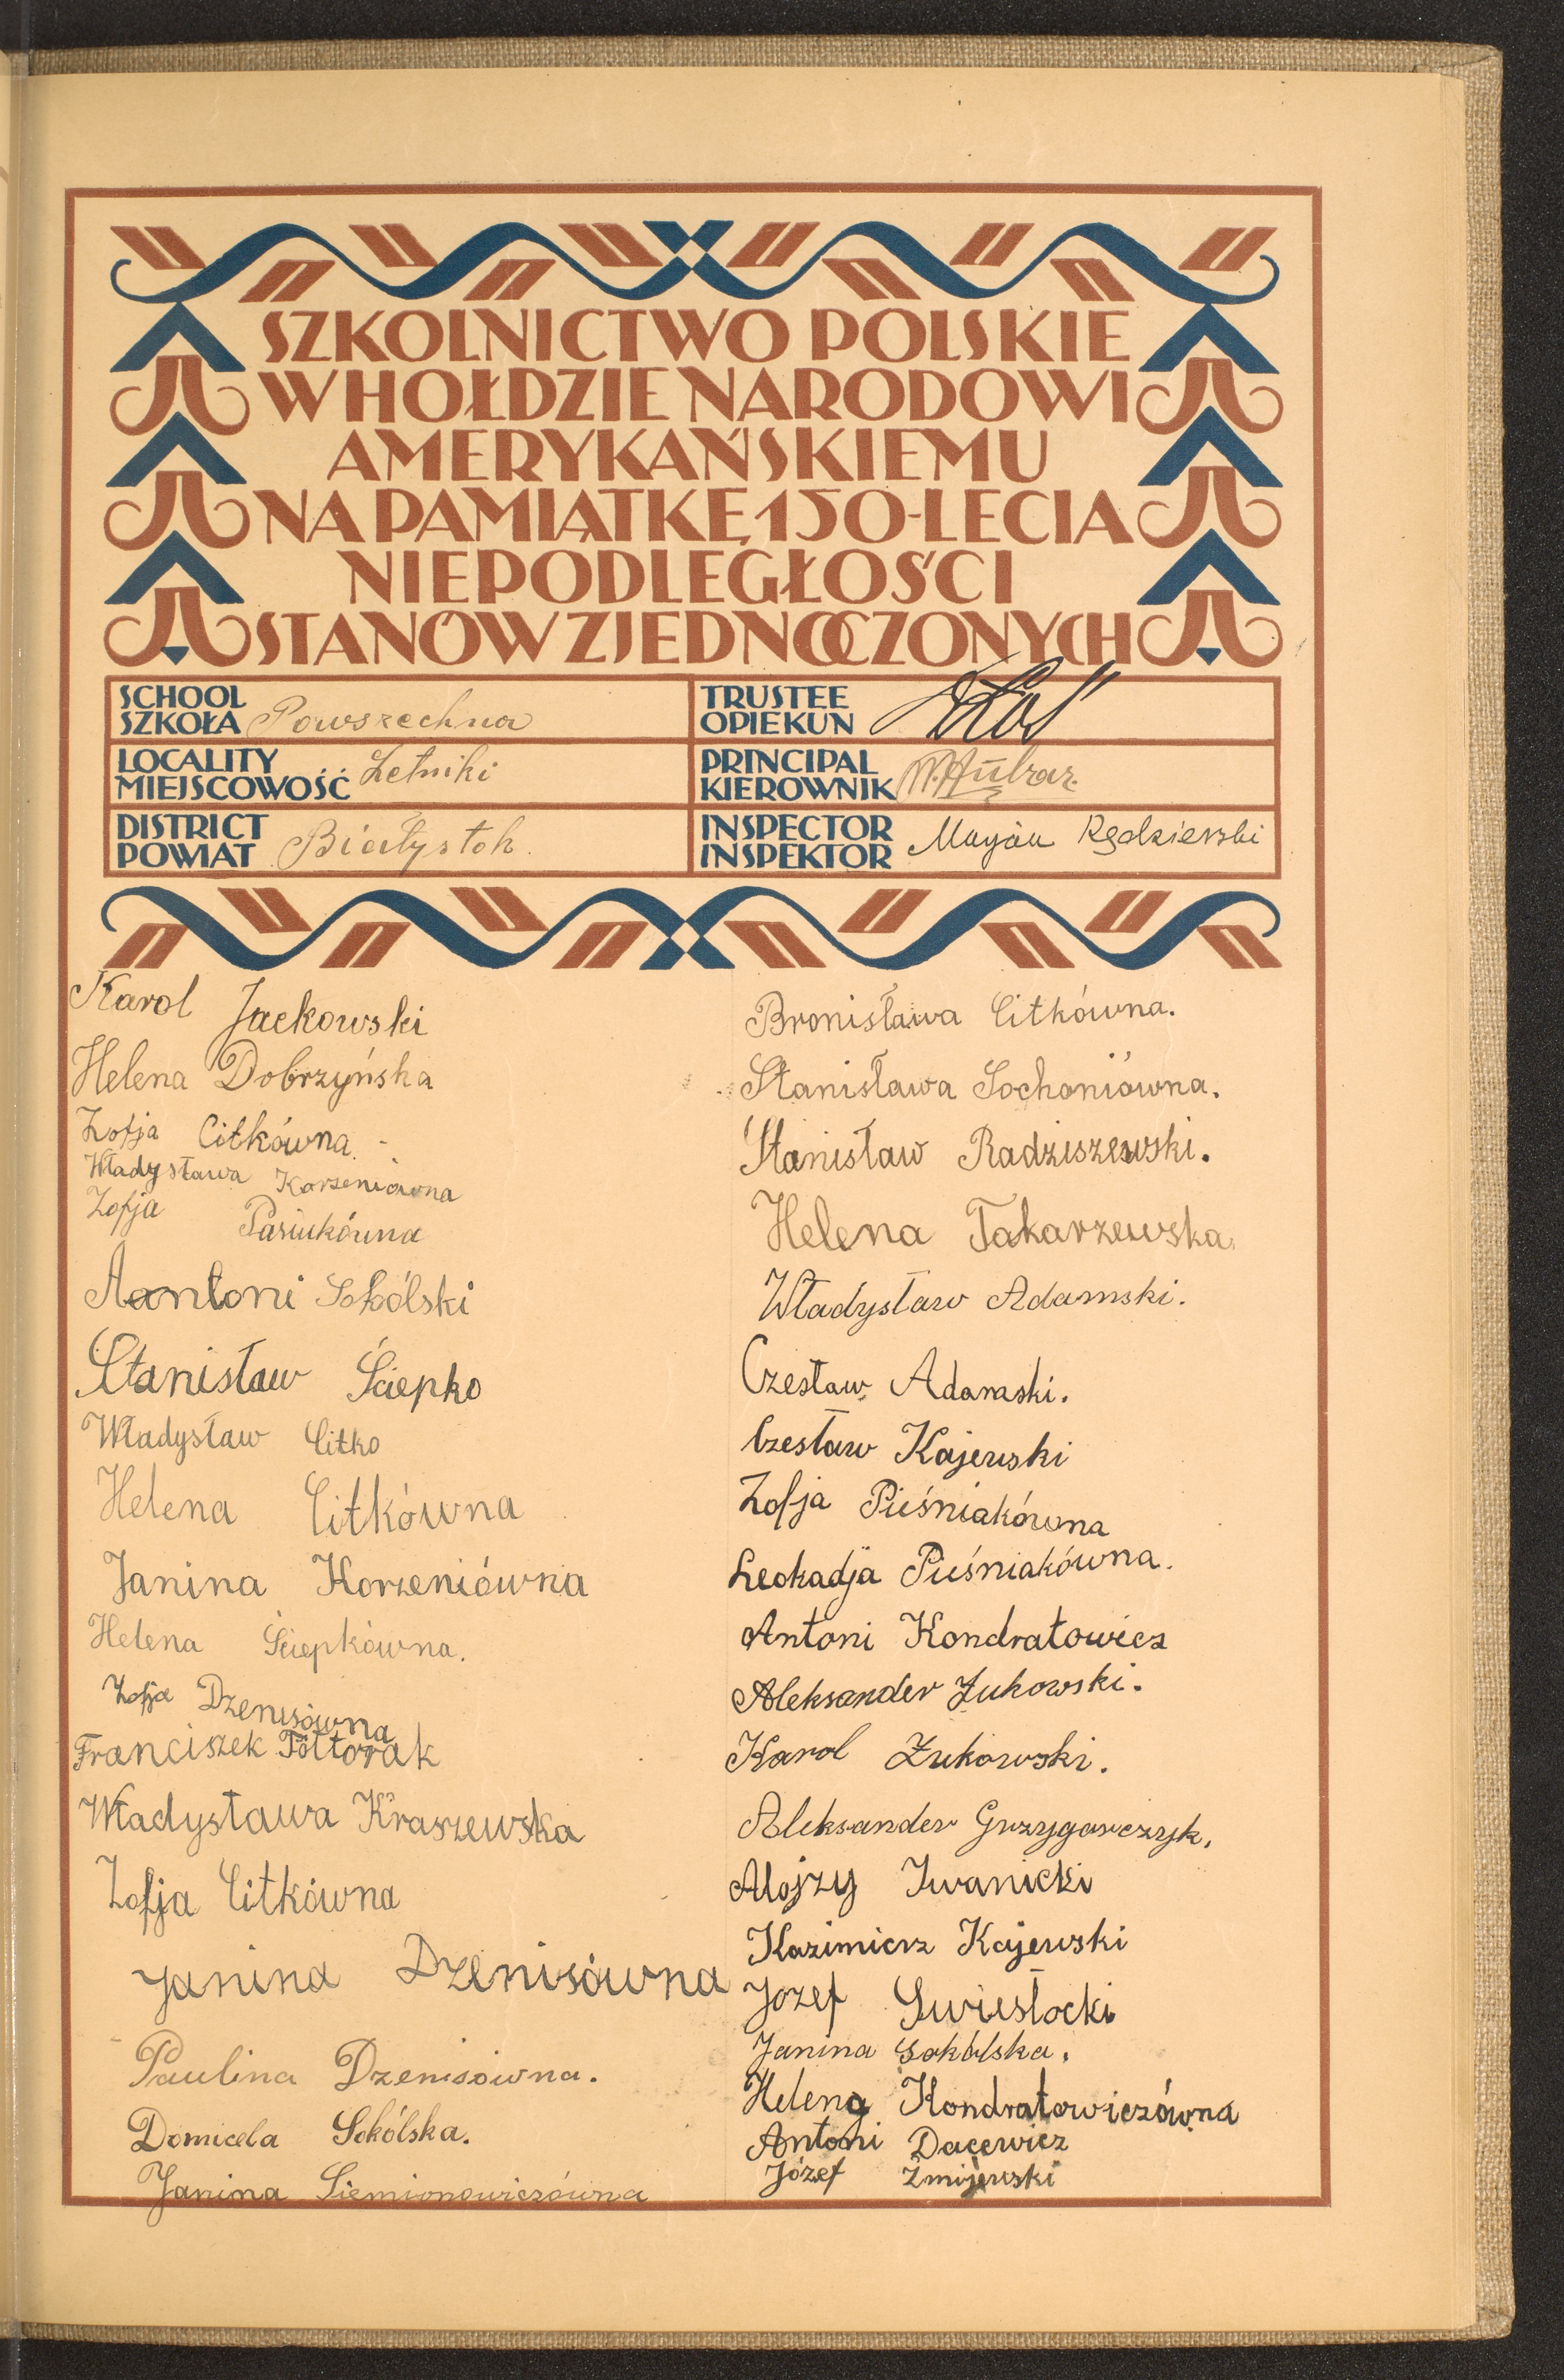 SZKOLNICTWO POLSKIE
W HOŁDZIE NARODOWI
AMERYKAŃSKIEMU
NA PAMIĄTKĘ 150-LECIA
NIEPODLEGŁOŚCI
STANÓW ZJEDNOCZONYCH
SCHOOL
SZKOŁA Powszechna
TRUSTEE
OPIEKUN
LOCALITY
MIEJSCOWOŚĆ Letniki
PRINCIPAL
KIEROWNIK
DISTRICT
POWIAT Białystok
INSPECTOR
INSPEKTOR Maryan Kędzierski
Karol Jackowski
Helena Dobrzyńska
Zofja Citkówna
Władysława Korzeniówna
Zofja Pasiukówna
Aantoni Sokólski
Stanisław Ściepko
Władysław Citko
Helena Citkówna
Janina Korzeniówna
Helena Ściepkówna.
Zofja Dzenisówna
Franciszek Półtorak
Władysława Kraszewska
Zofja Citkówna
Janina Dzenisówna
Paulina Dzenisówna.
Domicela Sokólska.
Janina Siemionowiczówna
Bronisława Citkówna.
Stanisława Sochoniówna.
Stanisław Radziszewski.
Helena Takarzewska
Władysław Adamski.
Czesław Adamski.
Czesław Kajewski
Zofja Pieśniakówna
Leokadja Pieśniakówna.
Antoni Kondratowicz
Aleksander Żukowski.
Karol Żukowski.
Aleksander Grzygorczyk.
Alojzy Iwanicki
Kazimierz Kajewski
Józef Swiesłocki
Janina Sokólska.
Helena Kondratowiczówna
Antoni Dacewicz
Józef Żmijewski